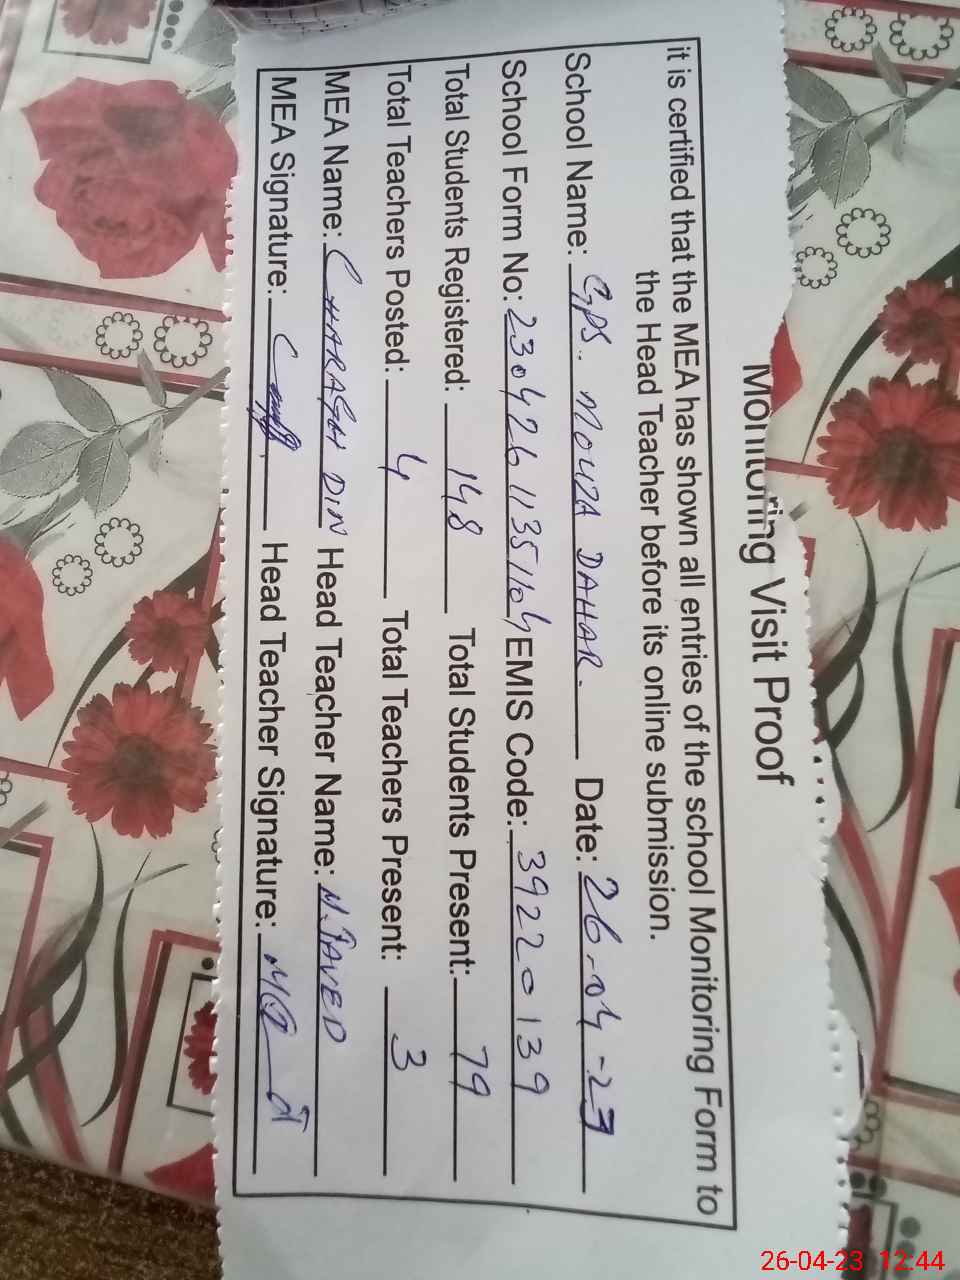 Monitoring Visit Proof
it is certified that the MEA has shown all entries of the school Monitoring Form to
the Head Teacher before its online submission.
School Name: GPS. MOUZA DAHAR. Date: 26-04-23
School Form No: 23042611351104 EMIS Code: 39220139
Total Students Registered: 148 Total Students Present: 79
Total Teachers Posted: 4 Total Teachers Present: 3
MEA Name: CHARAGH DIN Head Teacher Name: M. JAVED
MEA Signature: Head Teacher Signature:
26-04-23 12:44